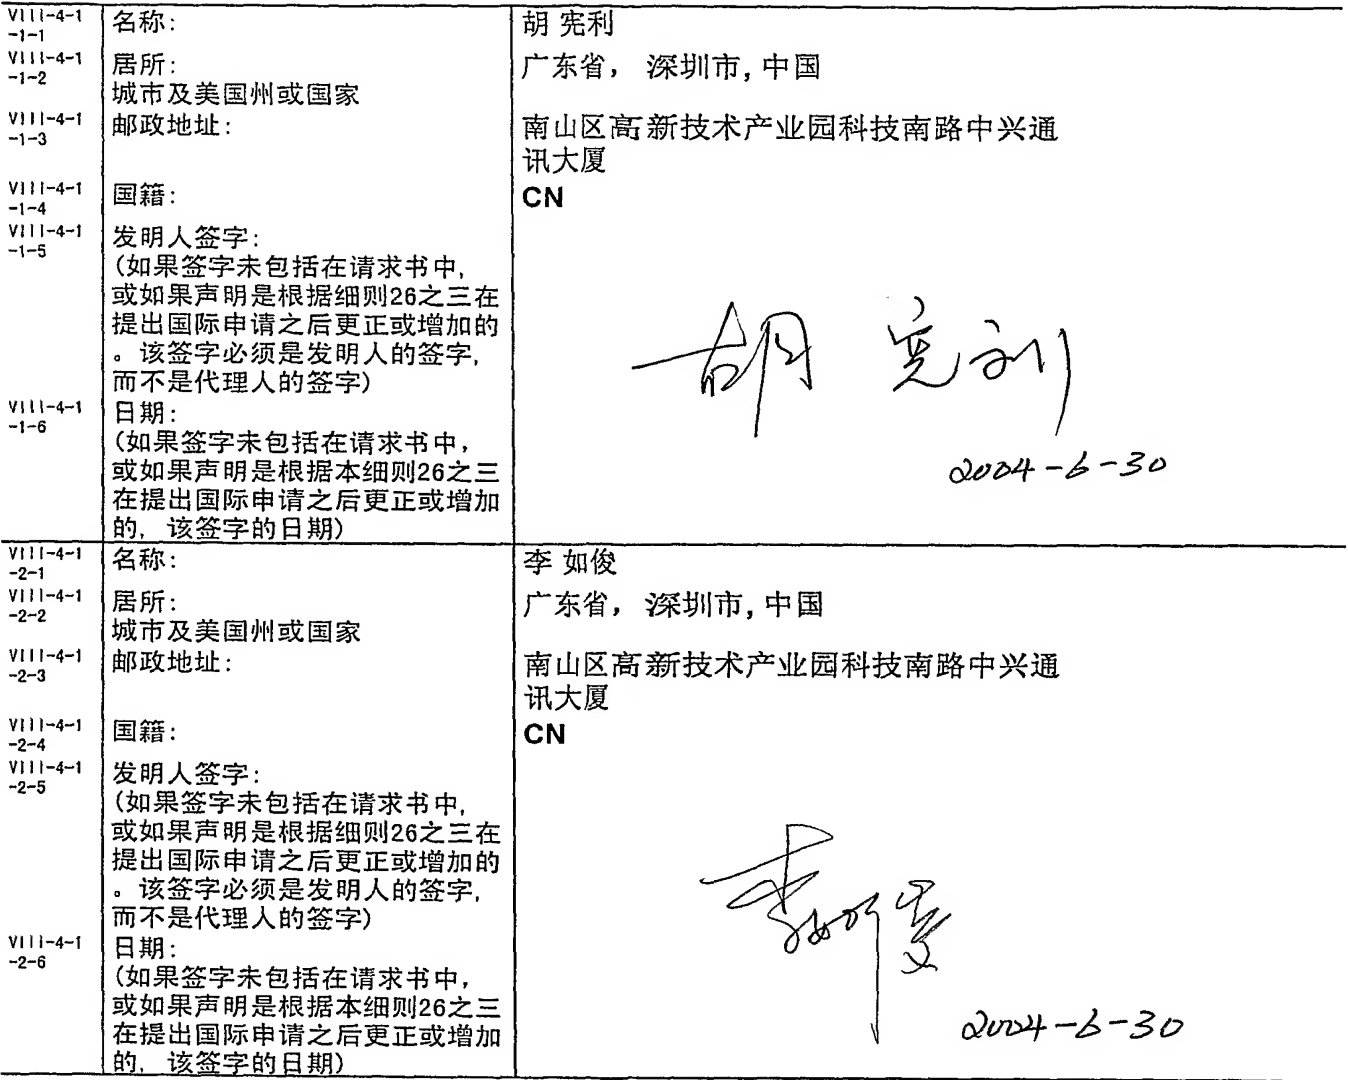 VIII-4-1
-1-1
名称:
胡 宪利
VIII-4-1
-1-2
居所:
城市及美国州或国家
广东省， 深圳市, 中国
VIII-4-1
-1-3
邮政地址:
南山区高新技术产业园科技南路中兴通
讯大厦
VIII-4-1
-1-4
国籍:
CN
VIII-4-1
-1-5
发明人签字:
(如果签字未包括在请求书中,
或如果声明是根据细则26之三在
提出国际申请之后更正或增加的
。该签字必须是发明人的签字,
而不是代理人的签字)
胡 宪利
VIII-4-1
-1-6
日期:
(如果签字未包括在请求书中,
或如果声明是根据本细则26之三
在提出国际申请之后更正或增加
的, 该签字的日期)
2004-6-30
VIII-4-1
-2-1
名称:
李 如俊
VIII-4-1
-2-2
居所:
城市及美国州或国家
广东省， 深圳市, 中国
VIII-4-1
-2-3
邮政地址:
南山区高新技术产业园科技南路中兴通
讯大厦
VIII-4-1
-2-4
国籍:
CN
VIII-4-1
-2-5
发明人签字:
(如果签字未包括在请求书中,
或如果声明是根据细则26之三在
提出国际申请之后更正或增加的
。该签字必须是发明人的签字,
而不是代理人的签字)
李如俊
VIII-4-1
-2-6
日期:
(如果签字未包括在请求书中,
或如果声明是根据本细则26之三
在提出国际申请之后更正或增加
的, 该签字的日期)
2004-6-30